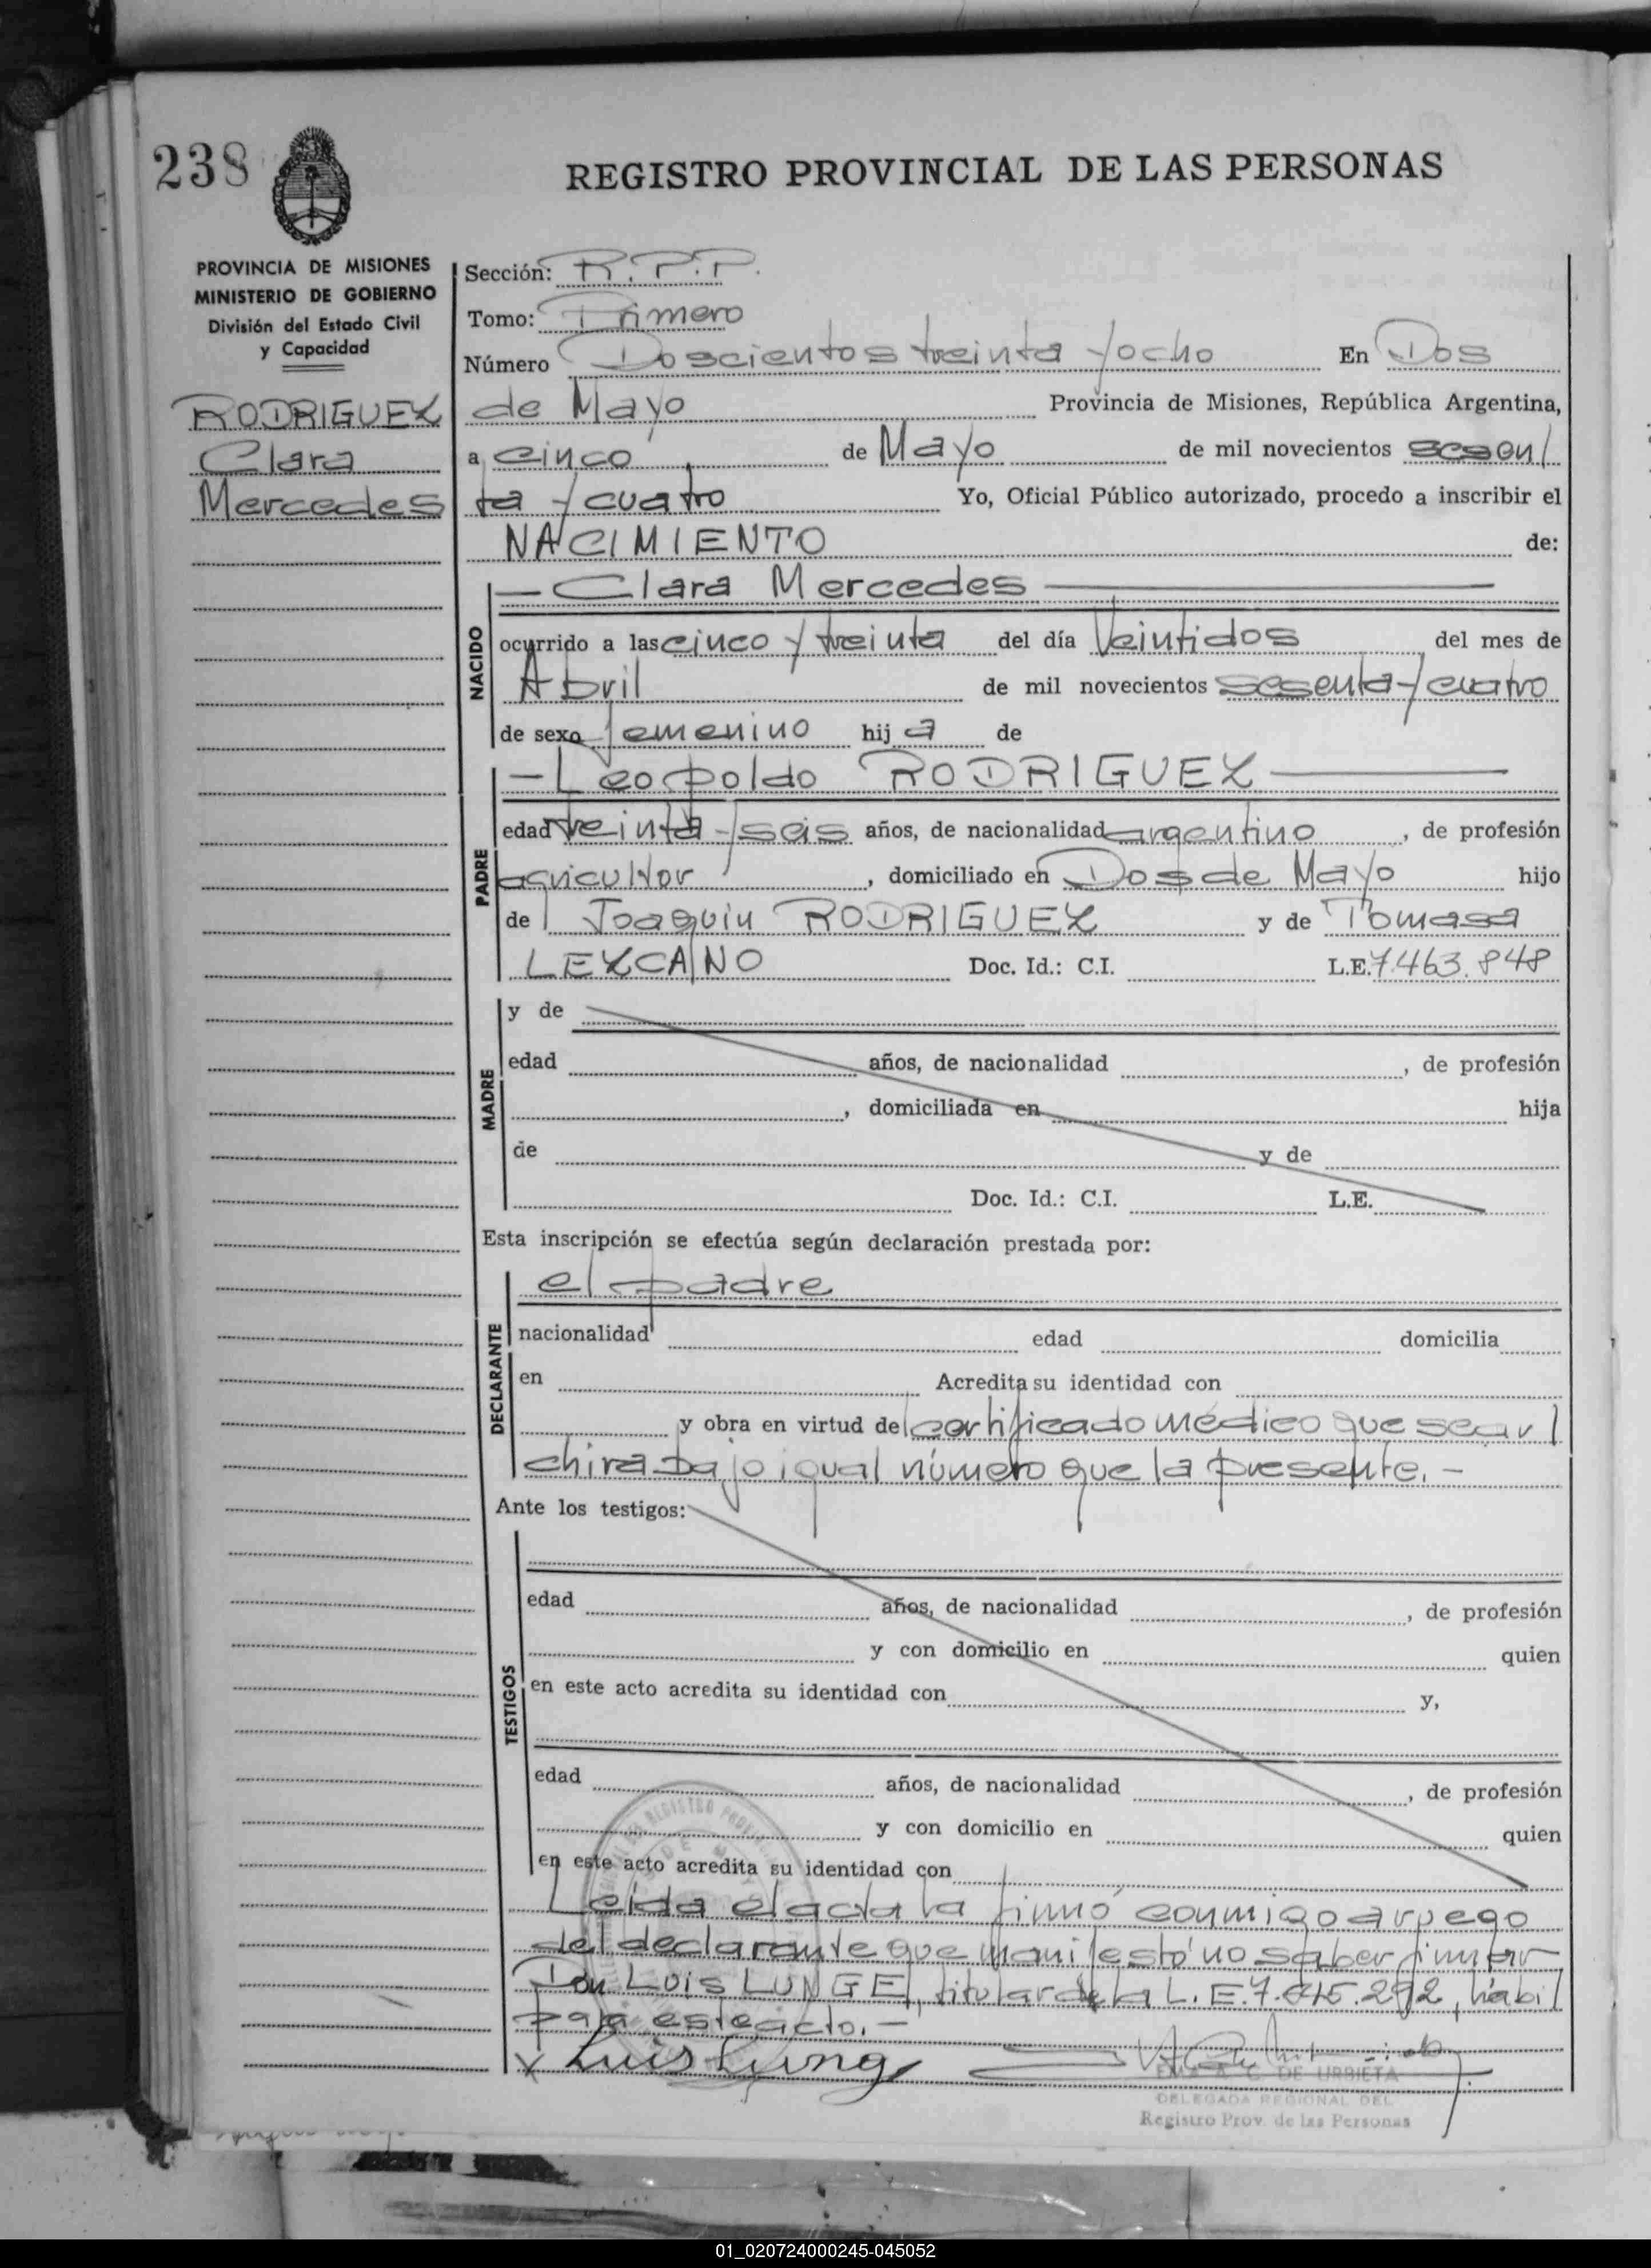 238
REGISTRO PROVINCIAL DE LAS PERSONAS
PROVINCIA DE MISIONES
MINISTERIO DE GOBIERNO
División del Estado Civil
y Capacidad
RODRIGUEZ
Clara
Mercedes
Sección: R.P.P.
Tomo: Primero
Número Doscientos treinta y ocho En Dos
de Mayo Provincia de Misiones, República Argentina,
a cinco de Mayo de mil novecientos sesen/
ta y cuatro Yo, Oficial Público autorizado, procedo a inscribir el
NACIMIENTO de:
NACIDO
— Clara Mercedes —
ocurrido a las cinco y treinta del día Veintidos del mes de
Abril de mil novecientos sesenta y cuatro
de sexo femenino hija de
PADRE
— Leopoldo RODRIGUEZ —
edad treinta y seis años, de nacionalidad argentino, de profesión
agricultor, domiciliado en Dos de Mayo hijo
de Joaquin RODRIGUEZ y de Tomasa
LEZCANO Doc. Id.: C.I. L.E. 7.463.848
MADRE
y de
edad años, de nacionalidad , de profesión
, domiciliada en hija
de y de
Doc. Id.: C.I. L.E.
Esta inscripción se efectúa según declaración prestada por:
DECLARANTE
el padre
nacionalidad edad domicilia
en Acredita su identidad con
y obra en virtud del certificado médico que se ar/
chiva bajo igual número que la presente.-
Ante los testigos:
TESTIGOS
edad años, de nacionalidad , de profesión
y con domicilio en quien
en este acto acredita su identidad con y,
edad años, de nacionalidad , de profesión
y con domicilio en quien
en este acto acredita su identidad con
Leida el acta la firmó conmigo a ruego
del declarante que manifestó no saber firmar
Don LUIS LUNGE, titular de la L.E. habil
para este acto.-
x Luis Lung
DE URBIETA
DELEGADA REGIONAL DEL
Registro Prov. de las Personas
01_020724000245-045052